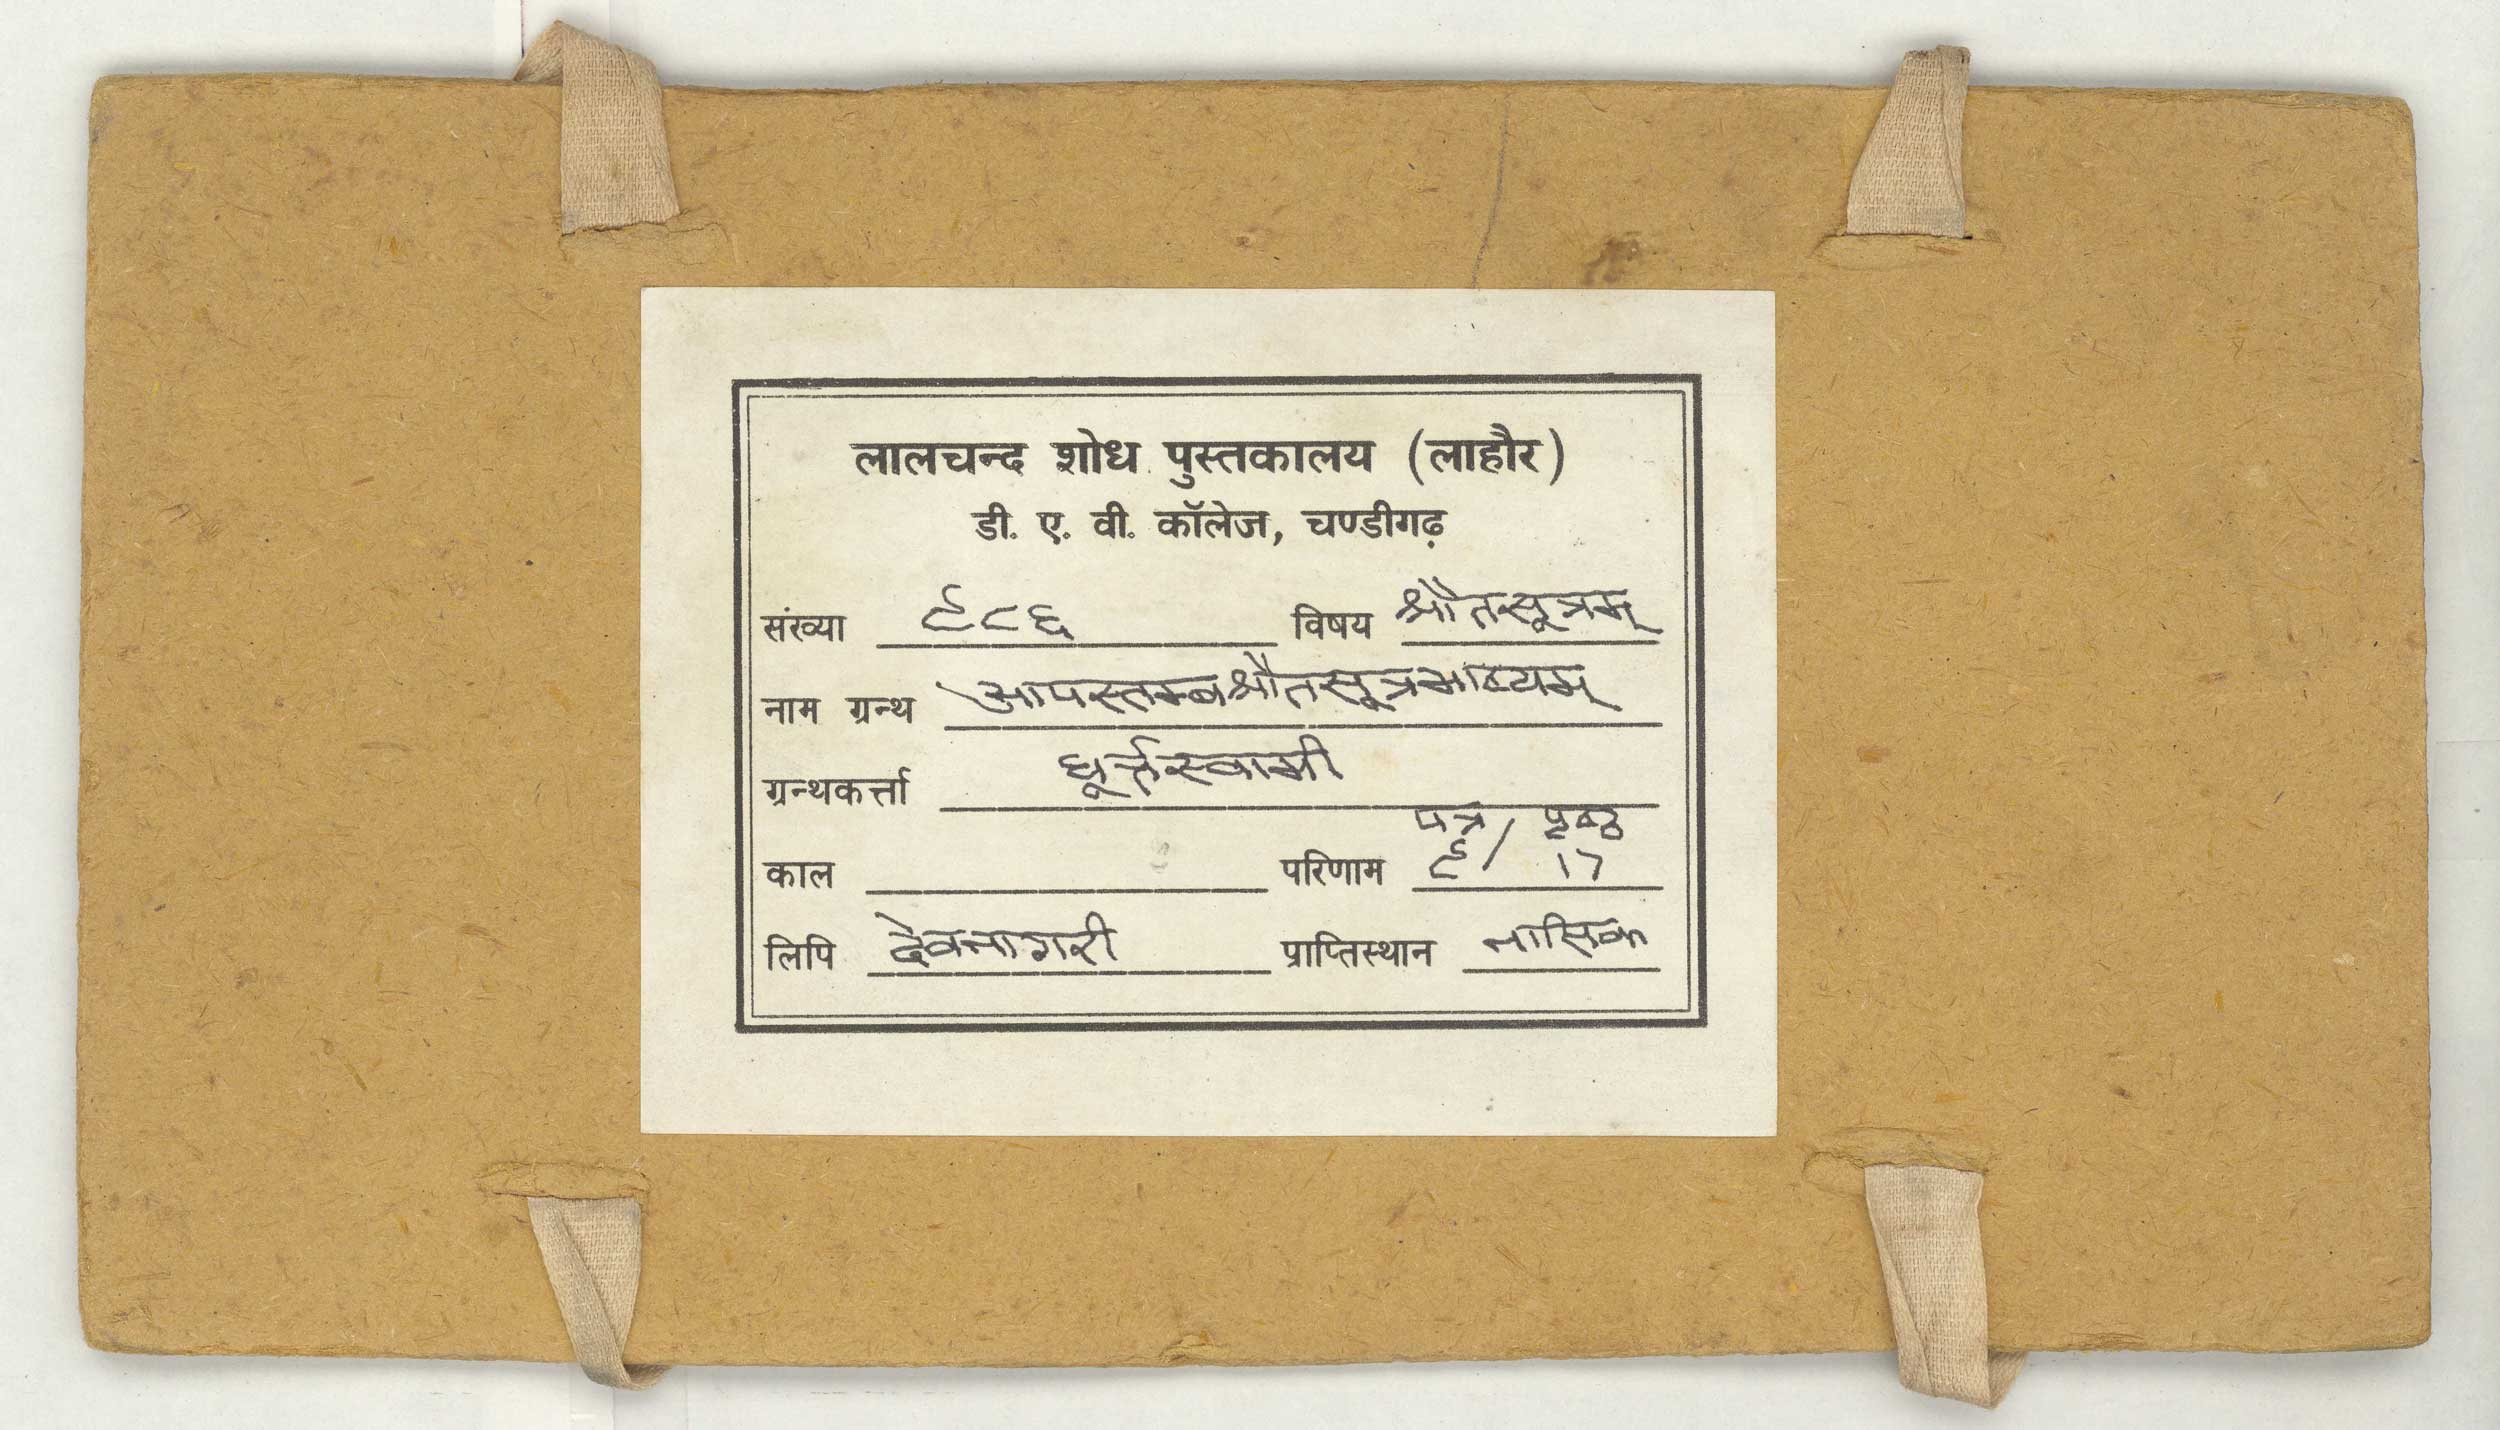 लालचन्द शोध पुस्तकालय (लाहौर)
डी. ए. वी. कॉलेज, चण्डीगढ़
संख्या ९८६ विषय श्रौतसूत्रम्
नाम ग्रन्थ आपस्तम्बश्रौतसूत्रभाष्यम्
ग्रन्थकर्त्ता धूर्त्तस्वामी
पत्र / पृष्ठ
काल परिणाम ९ / 17
लिपि देवनागरी प्राप्तिस्थान नासिक